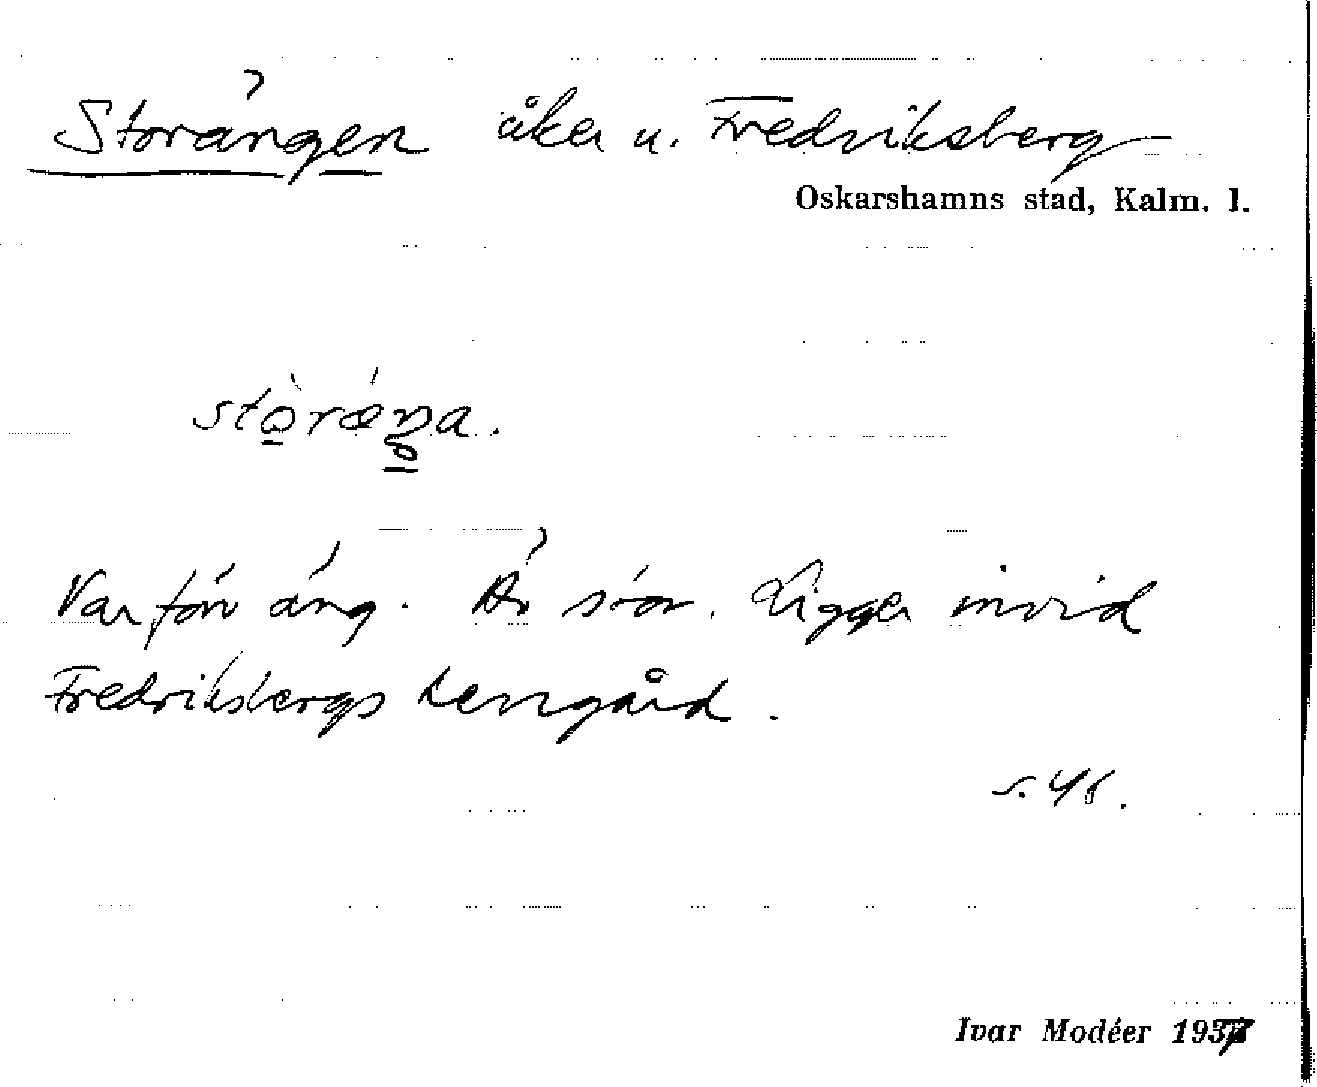 Storängen åker u. Fredriksberg
Oskarshamns stad, Kalm. l.
Var förr äng. Är stor. Ligger invid
Fredriksbergs herrgård.
s. 46.
Ivar Modéer 1937